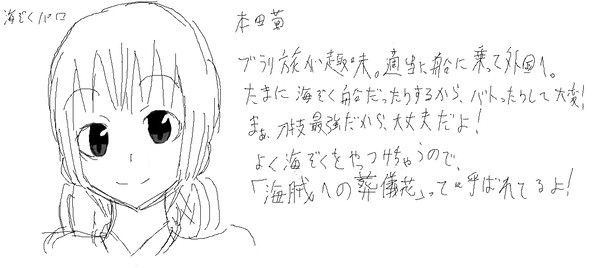 海ぞくパロ
本田菫
ブラリ旅が趣味。適当に船に乗って外国へ。
たまに海ぞく船だったりするから、バトったりして大変!
まぁ、刀技最強だから、大丈夫だよ!
よく海ぞくをやっつけちゃうので、
「海賊への葬儀花」って呼ばれてるよ!